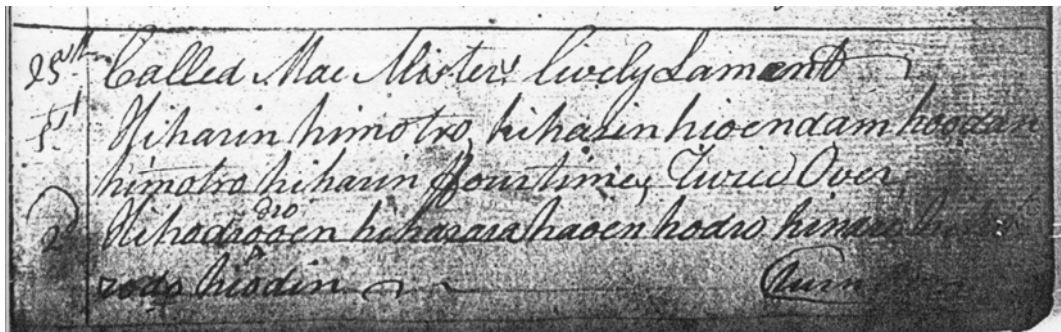 25th Called Mac Alister's lively Lament
1st Hiharin himotro, hiharin hioendam hoodan
himotro hiharin fourtimes, Twice Over,
2 Hihodrooen hiharara haoen hodro himdro
dro
rodo hiodin